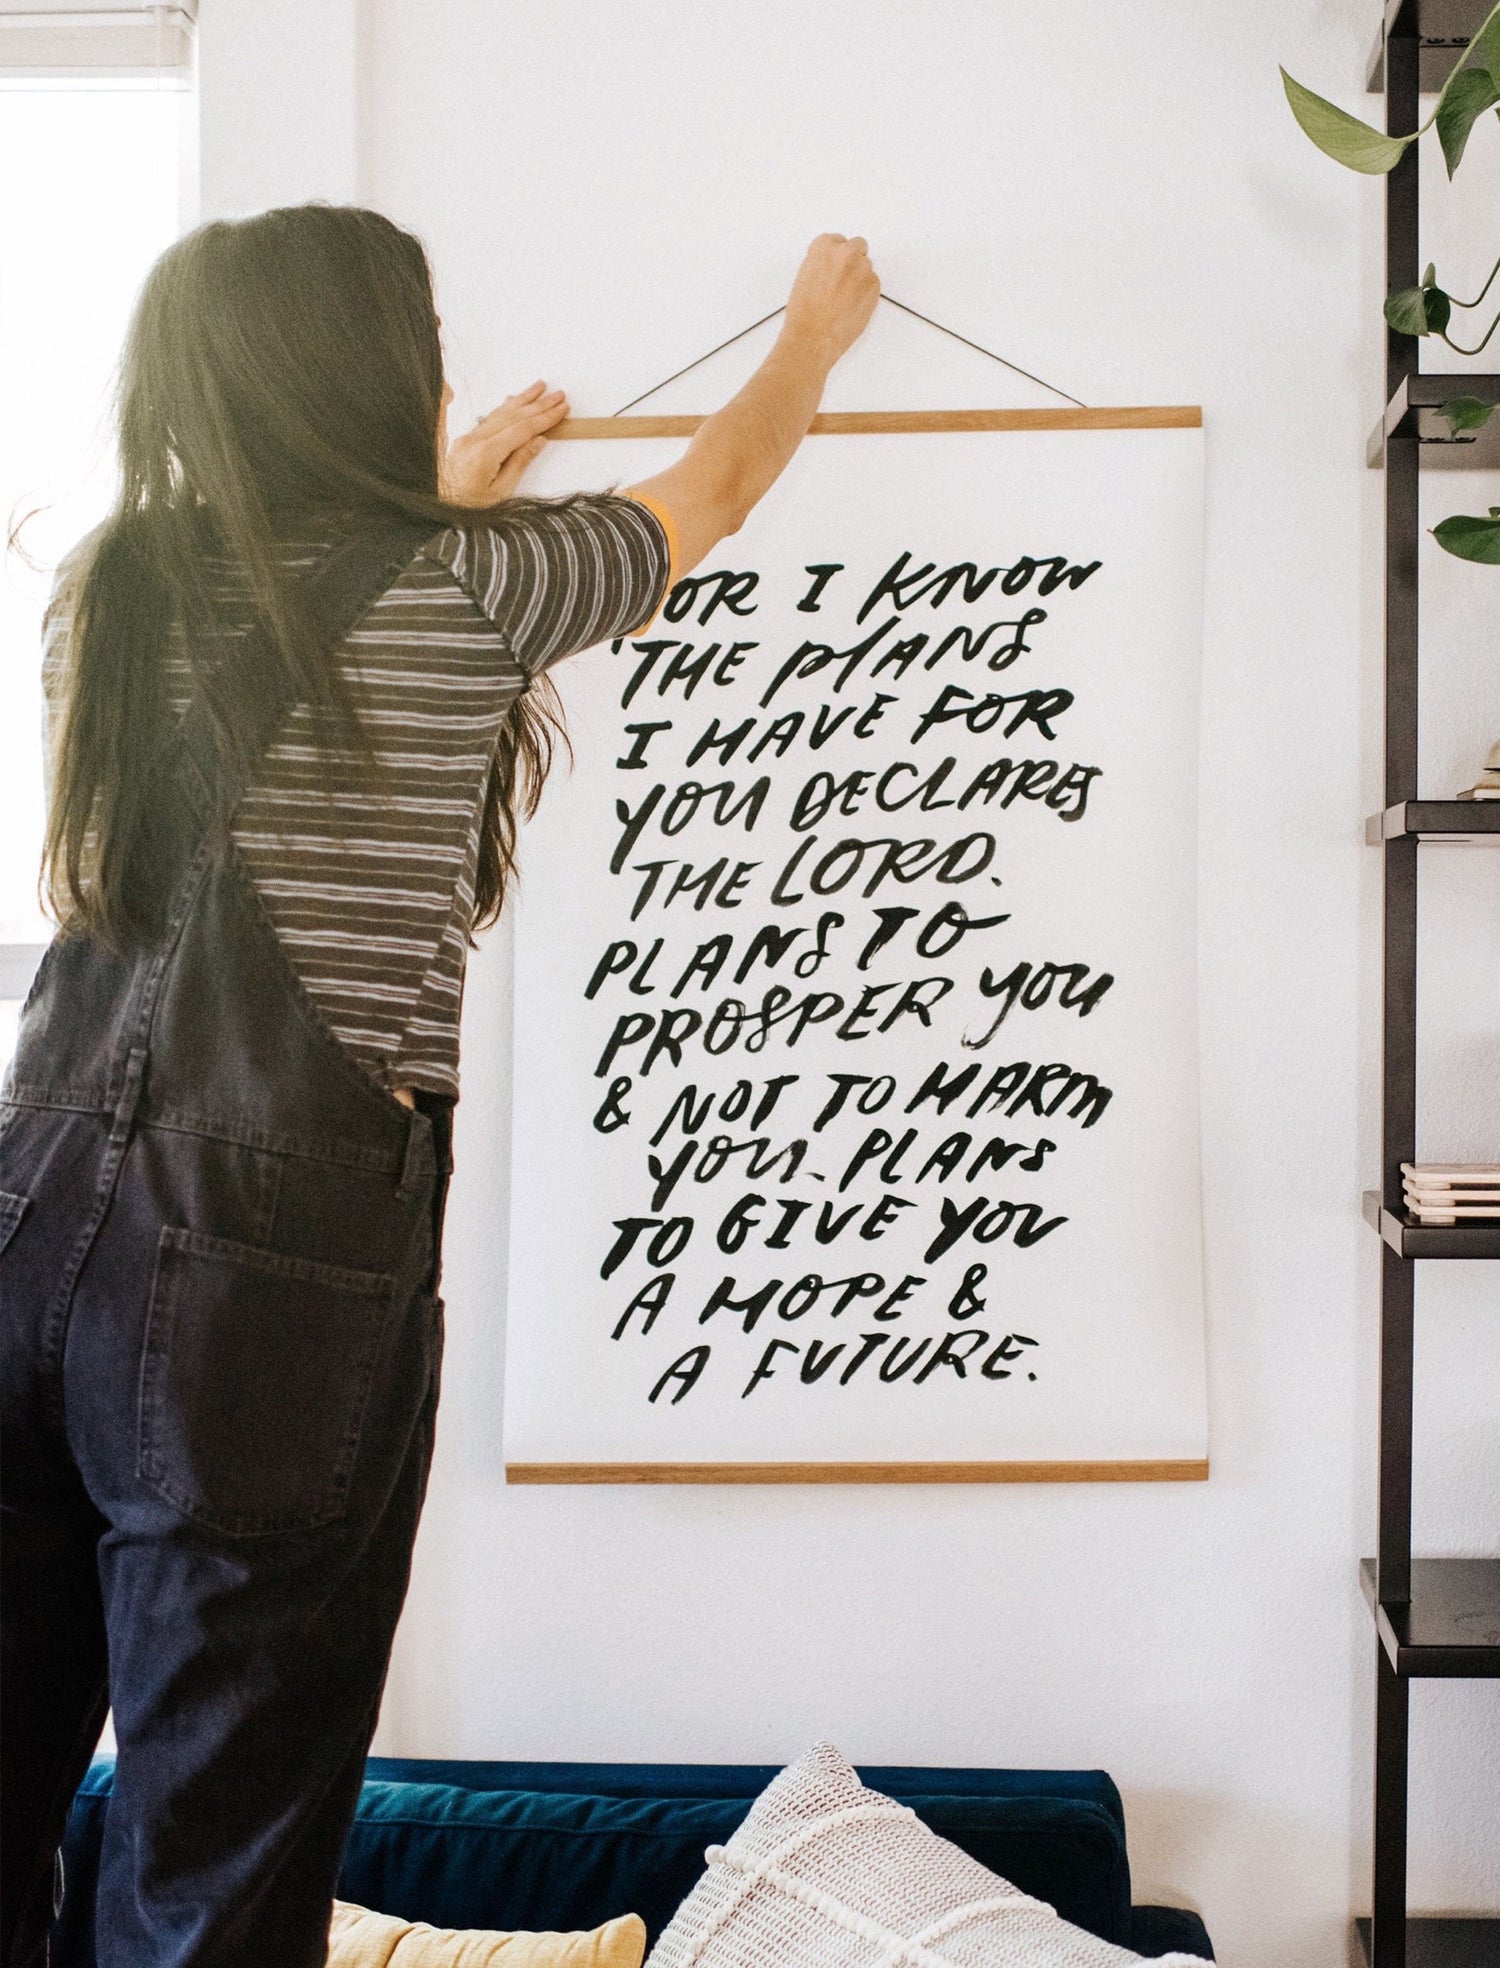 FOR I KNOW
THE PLANS
I HAVE FOR
YOU DECLARES
THE LORD.
PLANS TO
PROSPER YOU
& NOT TO HARM
YOU. PLANS
TO GIVE YOU
A HOPE &
A FUTURE.